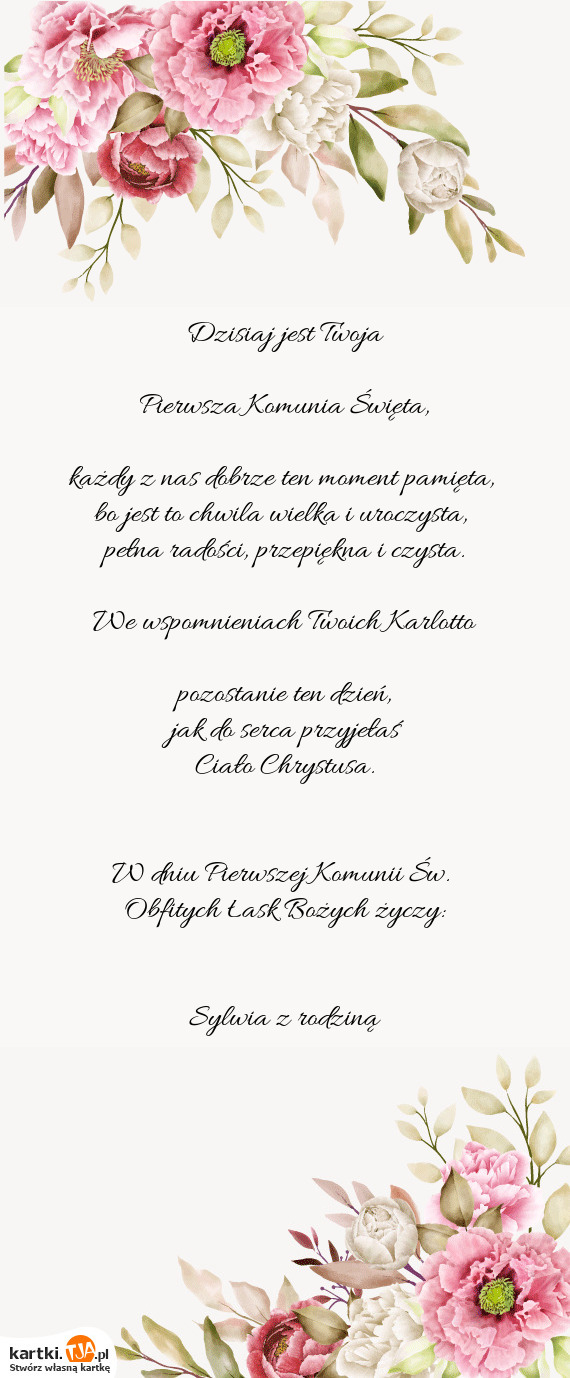 Dzisiaj jest Twoja
Pierwsza Komunia Święta,
każdy z nas dobrze ten moment pamięta,
bo jest to chwila wielka i uroczysta,
pełna radości, przepiękna i czysta.
We wspomnieniach Twoich Karlotto
pozostanie ten dzień,
jak do serca przyjęłaś
Ciało Chrystusa.
W dniu Pierwszej Komunii Św.
Obfitych Łask Bożych życzy:
Sylwia z rodziną
kartki.TJA.pl
Stwórz własną kartkę